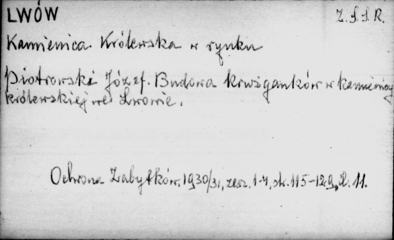 LWÓW
Z.S.S.R.
Kamienica Królewska w rynku
Piotrowski Józef. Budowa krużganków w kamienicy
królewskiej we Lwowie.
Ochrona Zabytków, 1930/31, zesz. 1-4, str. 115-129, il. 11.